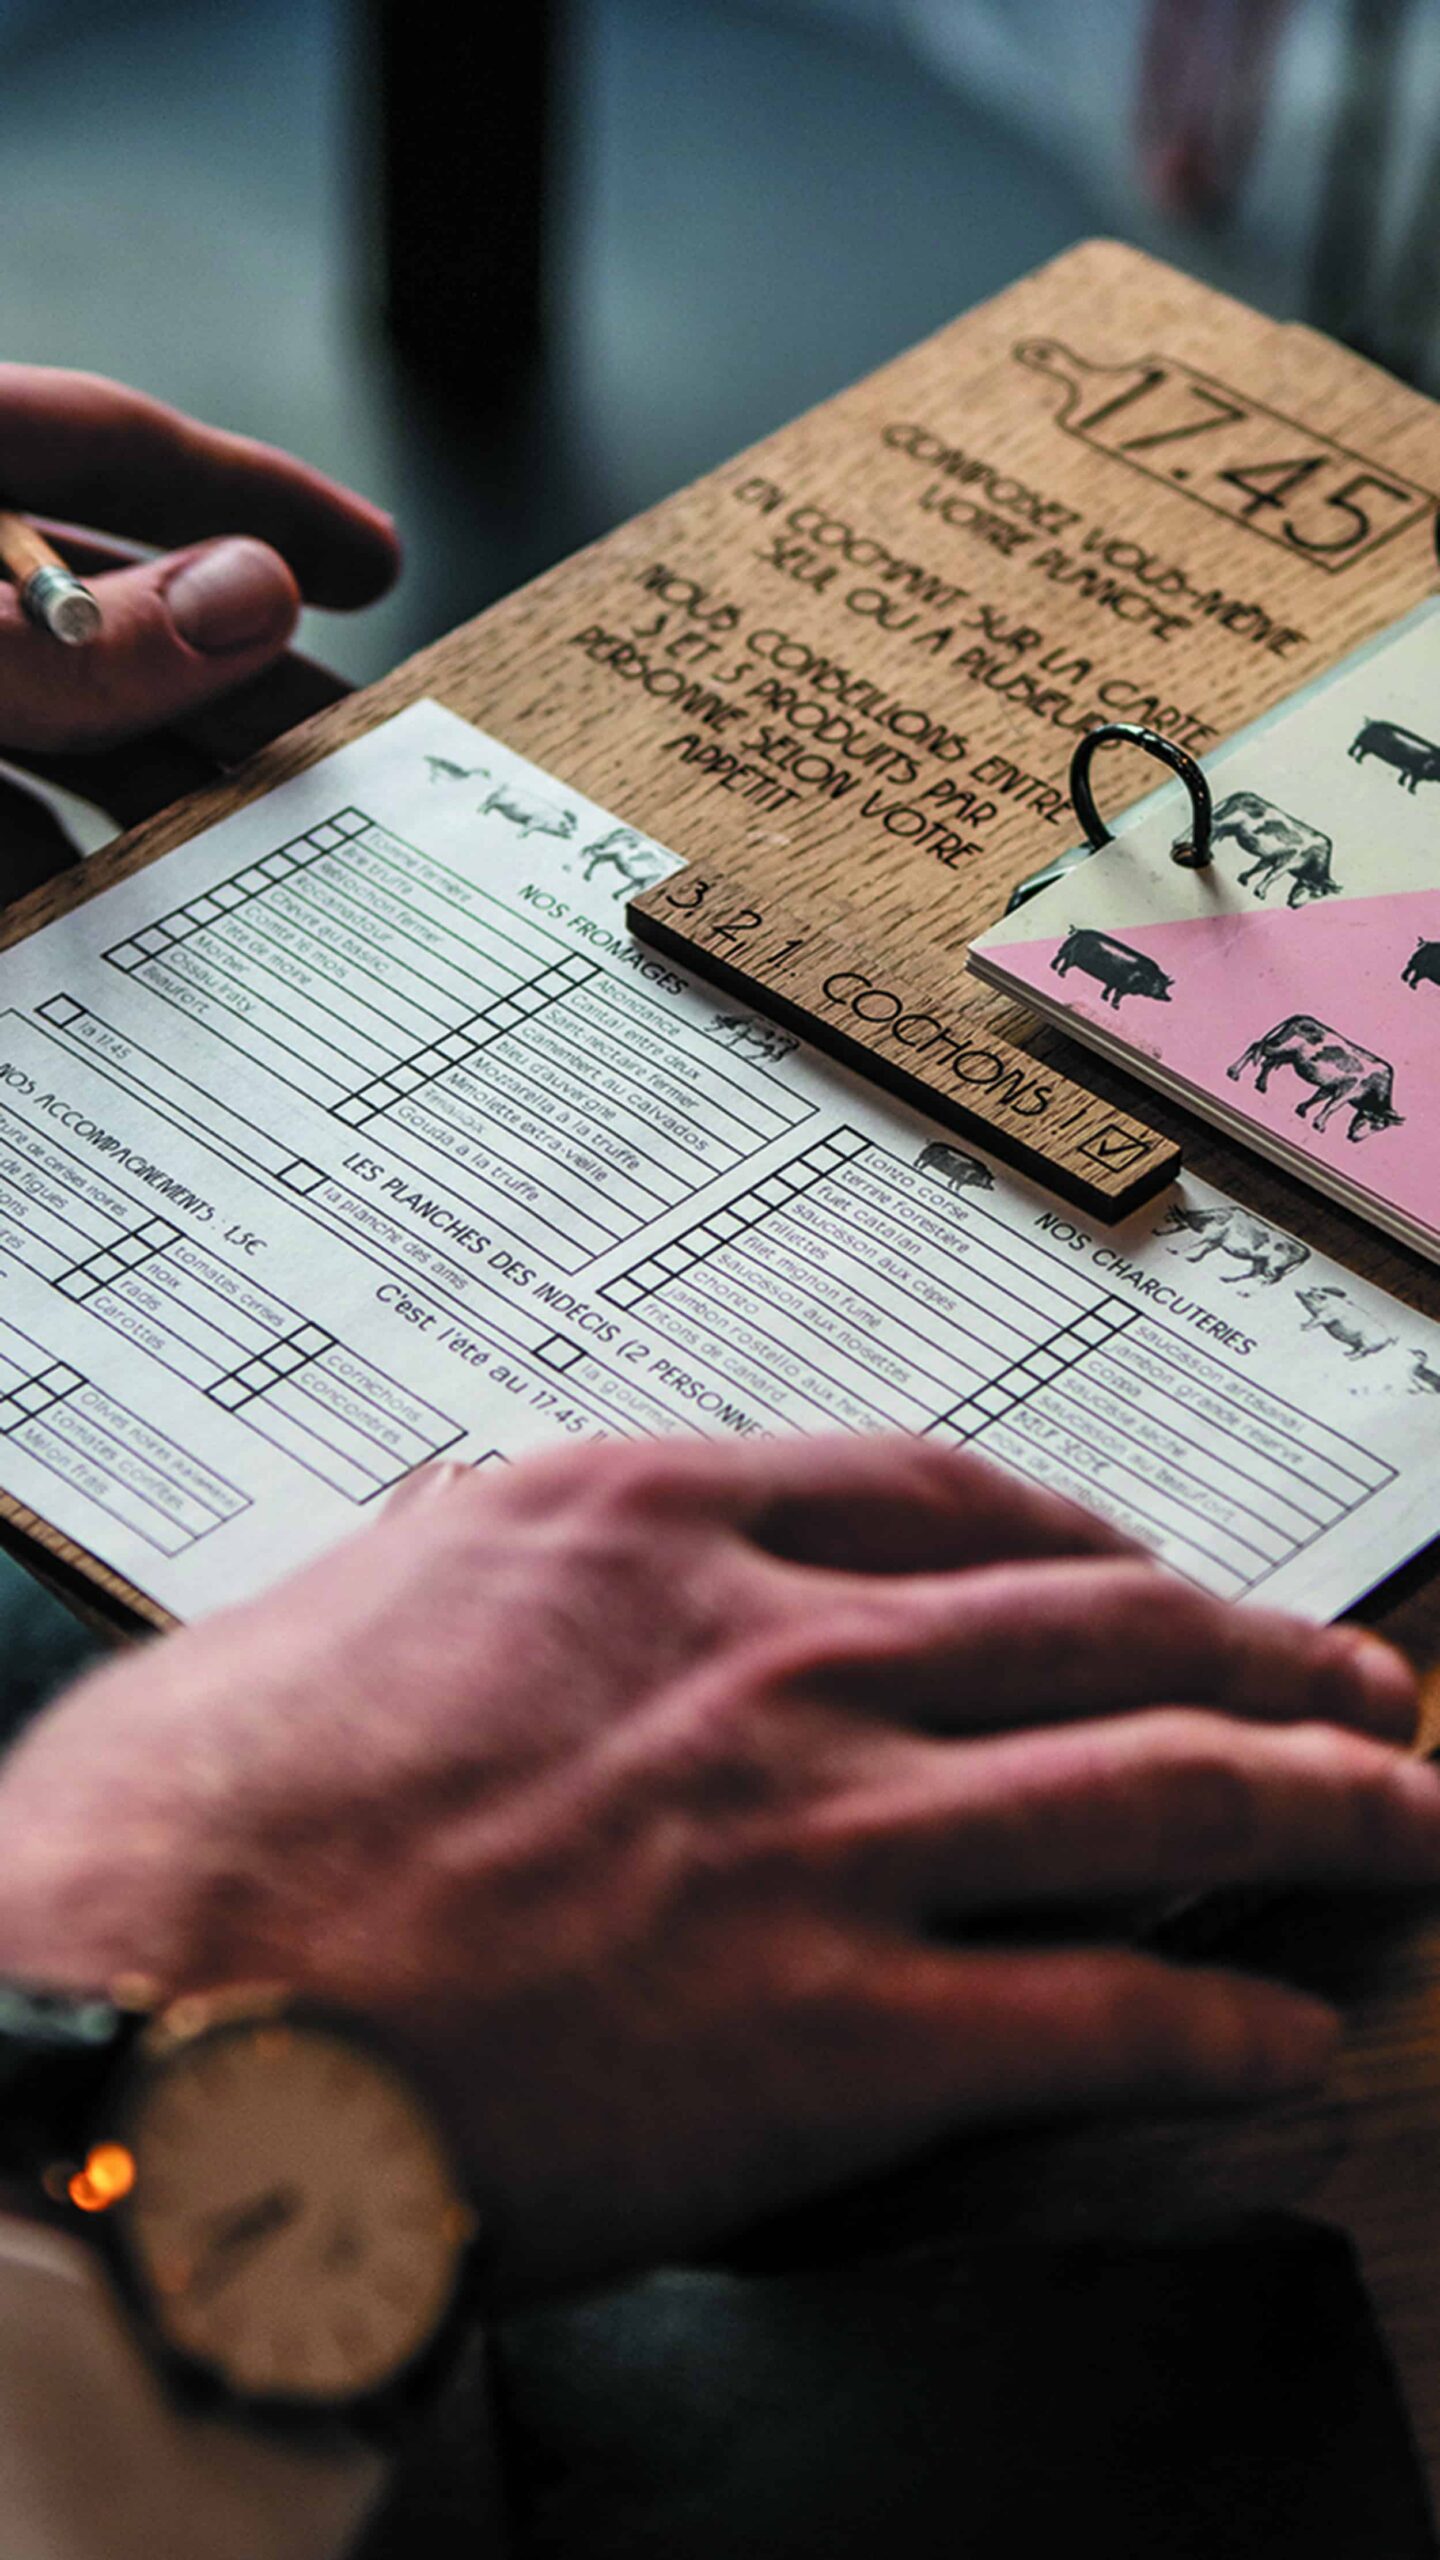 17.45
COMPOSEZ VOUS-MÊME
VOTRE PLANCHE
EN COCHANT SUR LA CARTE
SEUL OU A PLUSIEURS
NOUS CONSEILLONS ENTRE
3 ET 5 PRODUITS PAR
PERSONNE SELON VOTRE
APPÉTIT
3, 2, 1, COCHONS !
NOS FROMAGES
Tomme fermière
Brie truffe
Reblochon fermier
Rocamadour
Chèvre au basilic
Comté 16 mois
Tête de moine
Morbier
Ossau Iraty
Beaufort
Abondance
Cantal entre deux
Saint-nectaire fermier
camembert au calvados
bleu d'auvergne
Mozzarella à la truffe
Mimolette extra-vieille
Gouda à la truffe
NOS CHARCUTERIES
Lonzo corse
terrine forestière
fuet catalan
saucisson aux cèpes
rillettes
filet mignon fumé
saucisson aux noisettes
chorizo
jambon rostello aux herbes
fritons de canard
saucisson artisanal
jambon grande réserve
coppa
saucisse sèche
saucisson au beaufort
BŒUF SÉCHÉ
noix de jambon fumée
LES PLANCHES DES INDÉCIS (2 PERSONNES
la 17.45
la planche des amis
la gourmet
C'est l'été au 17.45 !!
NOS ACCOMPAGNEMENTS : 1,5€
de cerises noires
de figues
tomates cerises
noix
radis
Carottes
cornichons
concombres
Olives noires kalamata
tomates confites
Melon frais